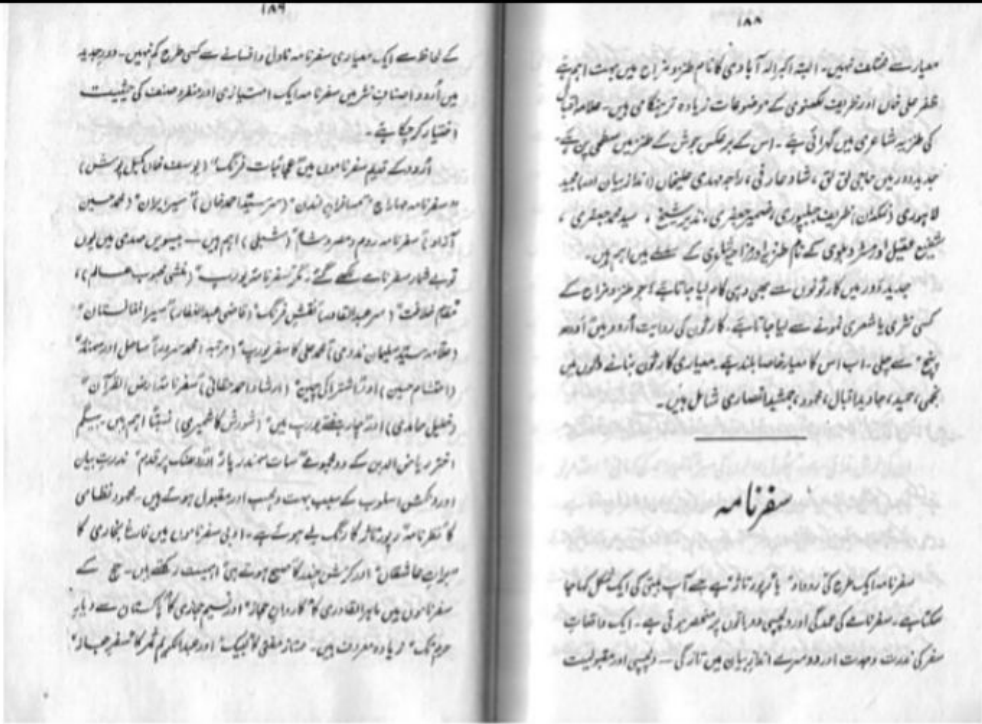 ۱۸۸
معیار سے مختلف نہیں۔ البتہ اکبر الہ آبادی کا نام طنز و مزاح میں بہت اہم ہے
ظفر علی خاں اور ظریف لکھنوی کے موضوعات زیادہ تر ہنگامی ہیں۔ علامہ اقبال
کی طنزیہ شاعری میں گہرائی ہے۔ اس کے برعکس جوش کے طنز میں سطحی پن ہے۔
جدید دور میں حاجی لق لق، شاد عارفی، راجہ مہدی علیخاں (انداز بیان اور) مجید
لاہوری (نمکدان) ظریف جبلپوری، ضمیر جعفری، نذیر شیخ، سید محمد جعفری،
شفیع عقیل اور مسٹر دہلوی کے نام طنزیہ اور مزاحیہ شاعری کے سلسلے میں اہم ہیں۔
جدید دور میں کارٹونوں سے بھی وہی کام لیا جاتا ہے، جو طنز و مزاح کے
کسی نثری یا شعری نمونے سے لیا جاتا ہے۔ کارٹون کی روایت اُردو میں "اودھ
پنچ" سے چلی۔ اب اس کا معیار خاصا بلند ہے۔ معیاری کارٹون بنانے والوں میں
نجمی، حمید، جاوید اقبال، محمود، جمشید انصاری شامل ہیں۔
سفرنامہ
سفرنامہ ایک طرح کی روداد یا "رپورتاژ" ہے جسے آپ بیتی کی ایک شکل کہا جا
سکتا ہے۔ سفرنامے کی عمدگی اور دلچسپی دو باتوں پر منحصر ہوتی ہے۔ ایک واقعاتِ
سفر کی ندرت و جدت اور دوسرے اندازِ بیان میں تازگی — دلچسپی اور مقبولیت
۱۸۹
کے لحاظ سے ایک معیاری سفرنامہ ناول و افسانے سے کسی طرح کم نہیں۔ دورِ جدید
میں اُردو اصنافِ نثر میں سفرنامہ ایک امتیازی اور منفرد صنف کی حیثیت
اختیار کر چکا ہے۔
اُردو کے قدیم سفرناموں میں "عجائبات فرنگ" (یوسف خاں کمبل پوش)
"مسافرانِ لندن" (سرسید احمد خاں) "سیرِ ایران" (محمد حسین
آزاد) "سفرنامہ روم و مصر و شام" (شبلی) اہم ہیں۔ بیسویں صدی میں یوں
تو بے شمار سفرنامے لکھے گئے۔ مگر "سفرنامہ یورپ" (منشی محبوب عالم)،
"مقام خلافت" (سر عبدالقادر) "نقشِ فرنگ" (قاضی عبدالغفار) "سیرِ افغانستان"
(علامہ سید سلیمان ندوی) "محمد علی کا سفر یورپ" (مرتبہ: محمد سرور) "ساحل اور سمندر"
(احتشام حسین) "سفرنامہ ارض القرآن"
(خلیل حامدی) اور "چار ہفتے یورپ میں" (شورش کاشمیری) نسبتاً اہم ہیں۔ بیگم
اختر ریاض الدین کے دو مجموعے "سات سمندر پار" اور "دھنک پر قدم" ندرتِ بیان
اور دلکش اسلوب کے سبب بہت دلچسپ اور مقبول ہوئے ہیں۔ محمود نظامی
کا "نظرنامہ" رپورتاژ کا رنگ لیے ہوئے ہے۔ ادبی سفرناموں میں فارغ بخاری کا
"براتِ عاشقاں" اور کرشن چندر کا "صبح ہوتے ہی" اہمیت رکھتے ہیں۔ حج کے
سفرناموں میں ماہر القادری کا "کاروانِ حجاز" اور نسیم حجازی کا "پاکستان سے دیارِ
حرم تک" زیادہ معروف ہیں۔ ممتاز مفتی کا "لبیک" اور عبدالکریم ثمر کا "سفر حجاز"